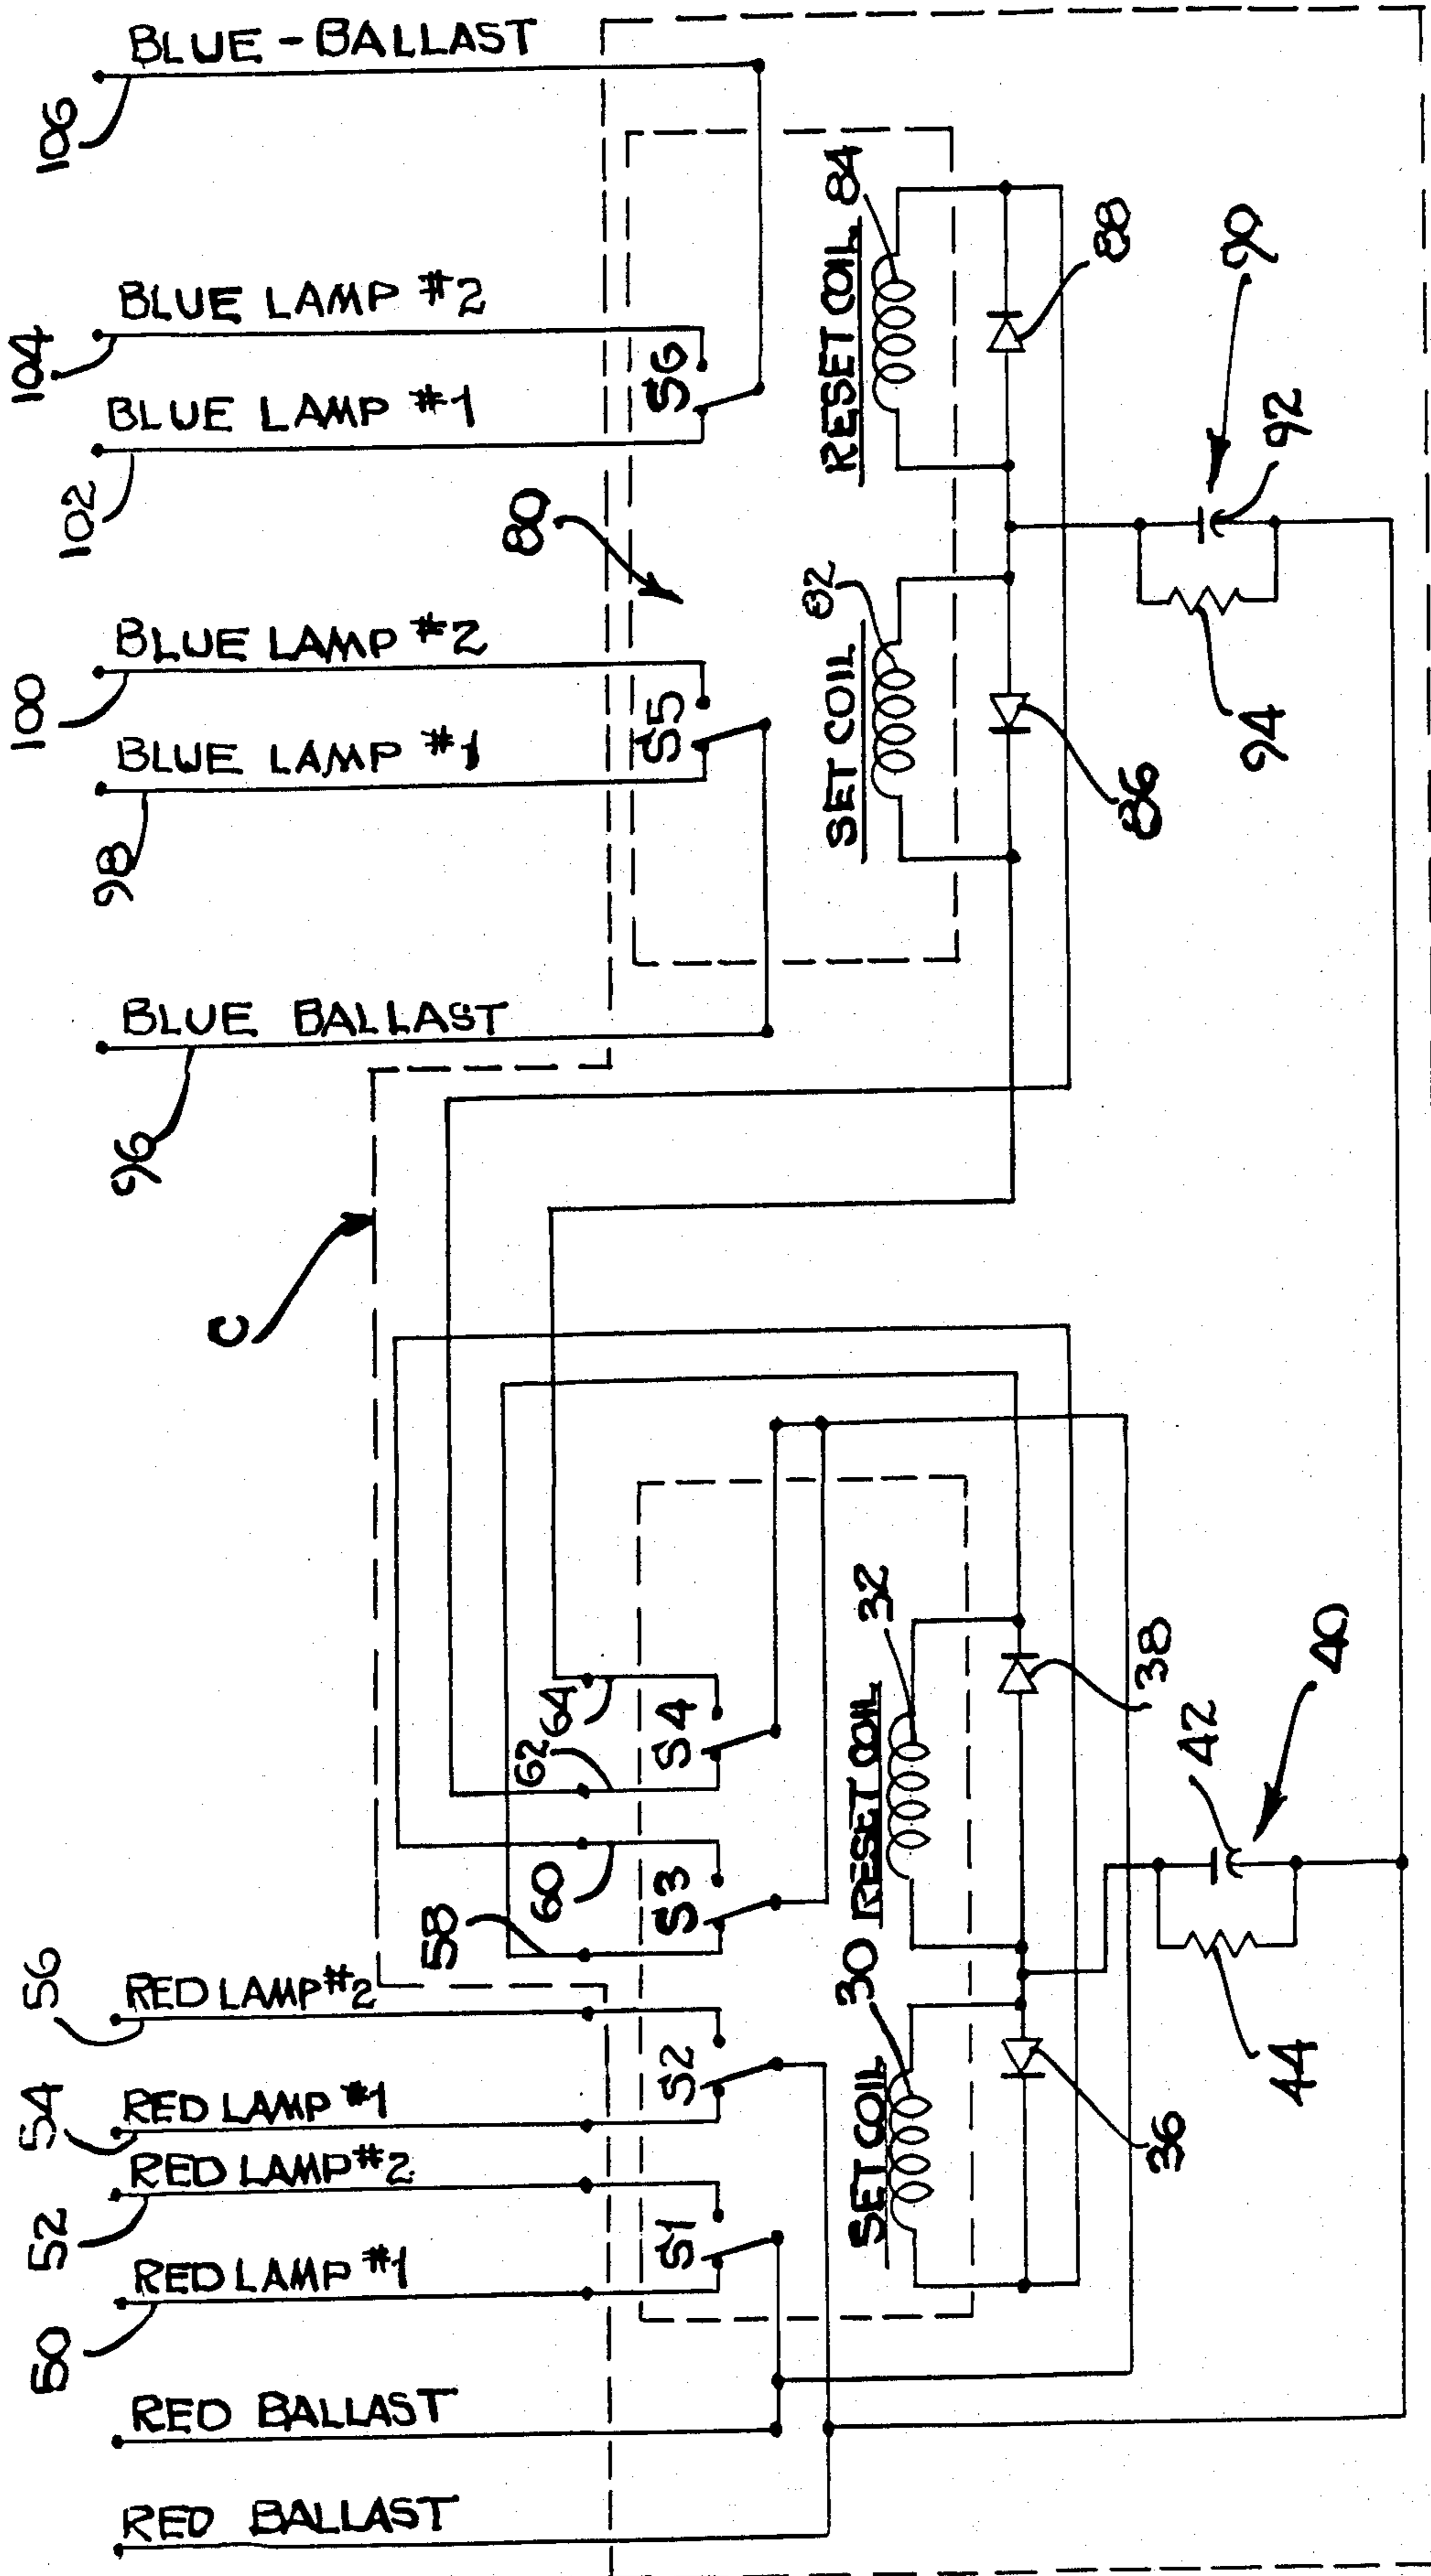 106
BLUE - BALLAST
104
BLUE LAMP #2
102
BLUE LAMP #1
S6
RESET COIL 84
88
90
92
80
100
BLUE LAMP #2
98
BLUE LAMP #1
S5
SET COIL 82
86
94
96
BLUE BALLAST
C
64
62
S4
60
58
S3
RESET COIL 32
38
42
40
56
RED LAMP #2
54
RED LAMP #1
S2
52
RED LAMP #2
50
RED LAMP #1
S1
SET COIL 30
36
44
RED BALLAST
RED BALLAST